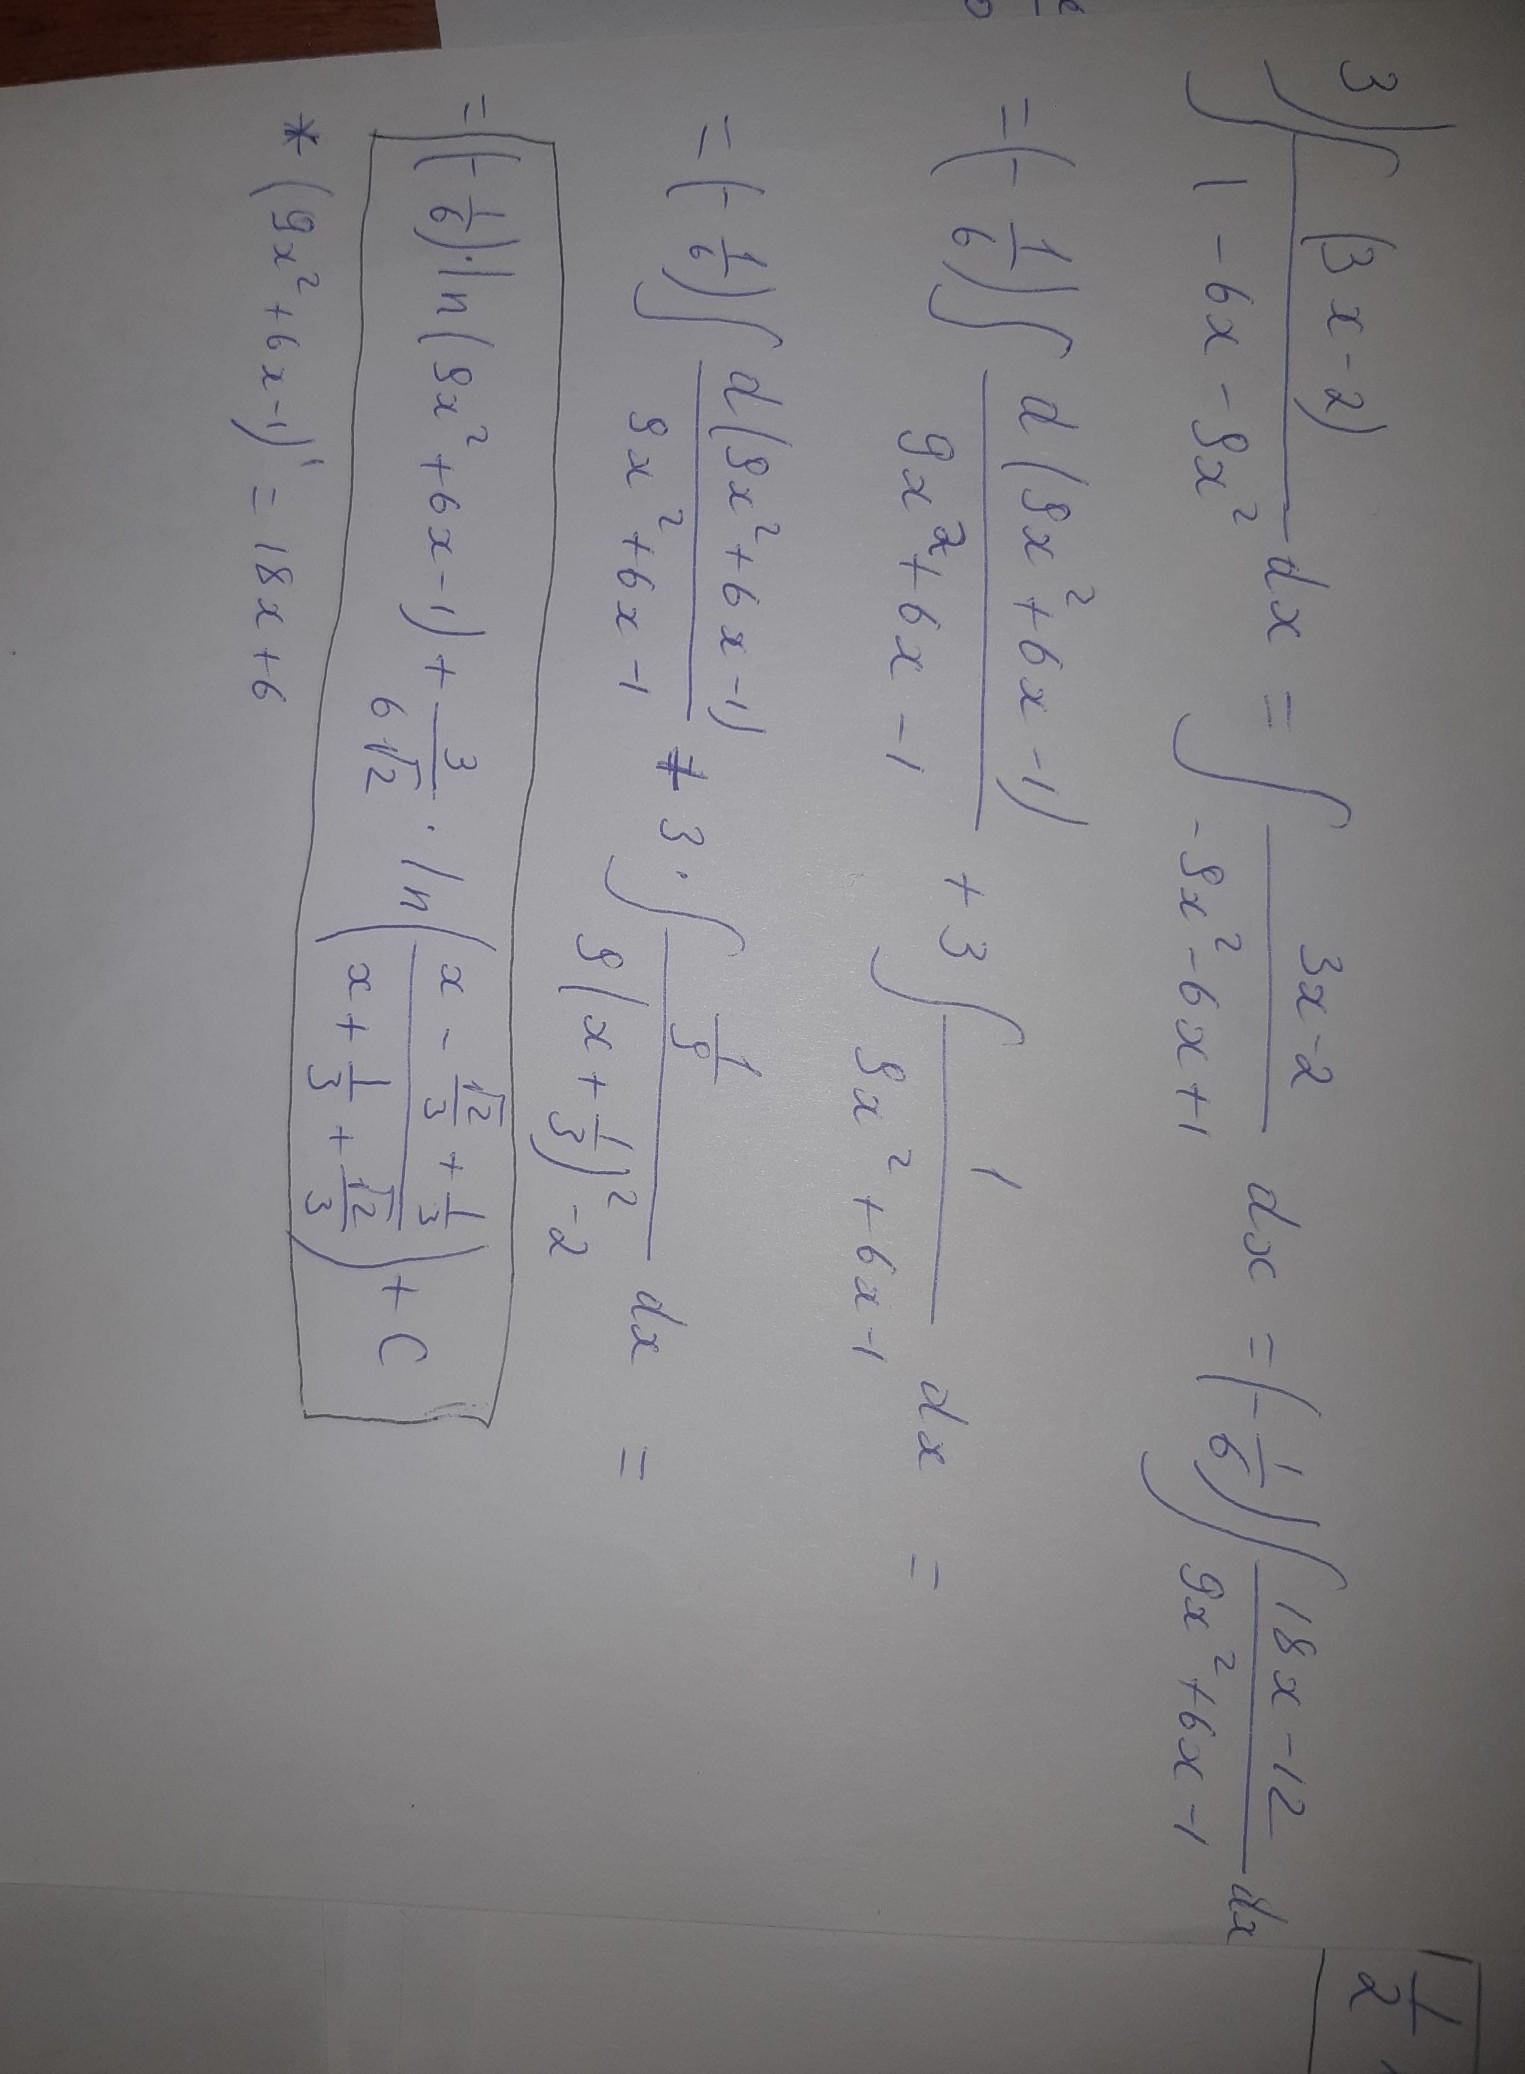 3) ∫ (3x-2)/(1-6x-9x²) dx = ∫ (3x-2)/(-9x²-6x+1) dx = (-1/6) ∫ (18x-12)/(9x²+6x-1) dx
= (-1/6) ∫ d(9x²+6x-1)/(9x²+6x-1) + 3 ∫ 1/(9x²+6x-1) dx =
= (-1/6) ∫ d(9x²+6x-1)/(9x²+6x-1) + 3· ∫ (1/9)/(9(x+1/3)²-2) dx =
= (-1/6)·ln(9x²+6x-1) + 3/(6√2) · ln((x-√2/3+1/3)/(x+1/3+√2/3)) + C
* (9x²+6x-1)' = 18x+6
1/2